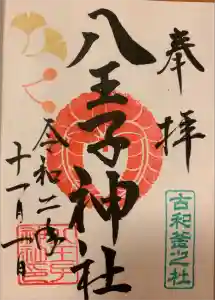 奉拝
八王子神社
令和二年
十一月二日
古和釜之社
八王子神社